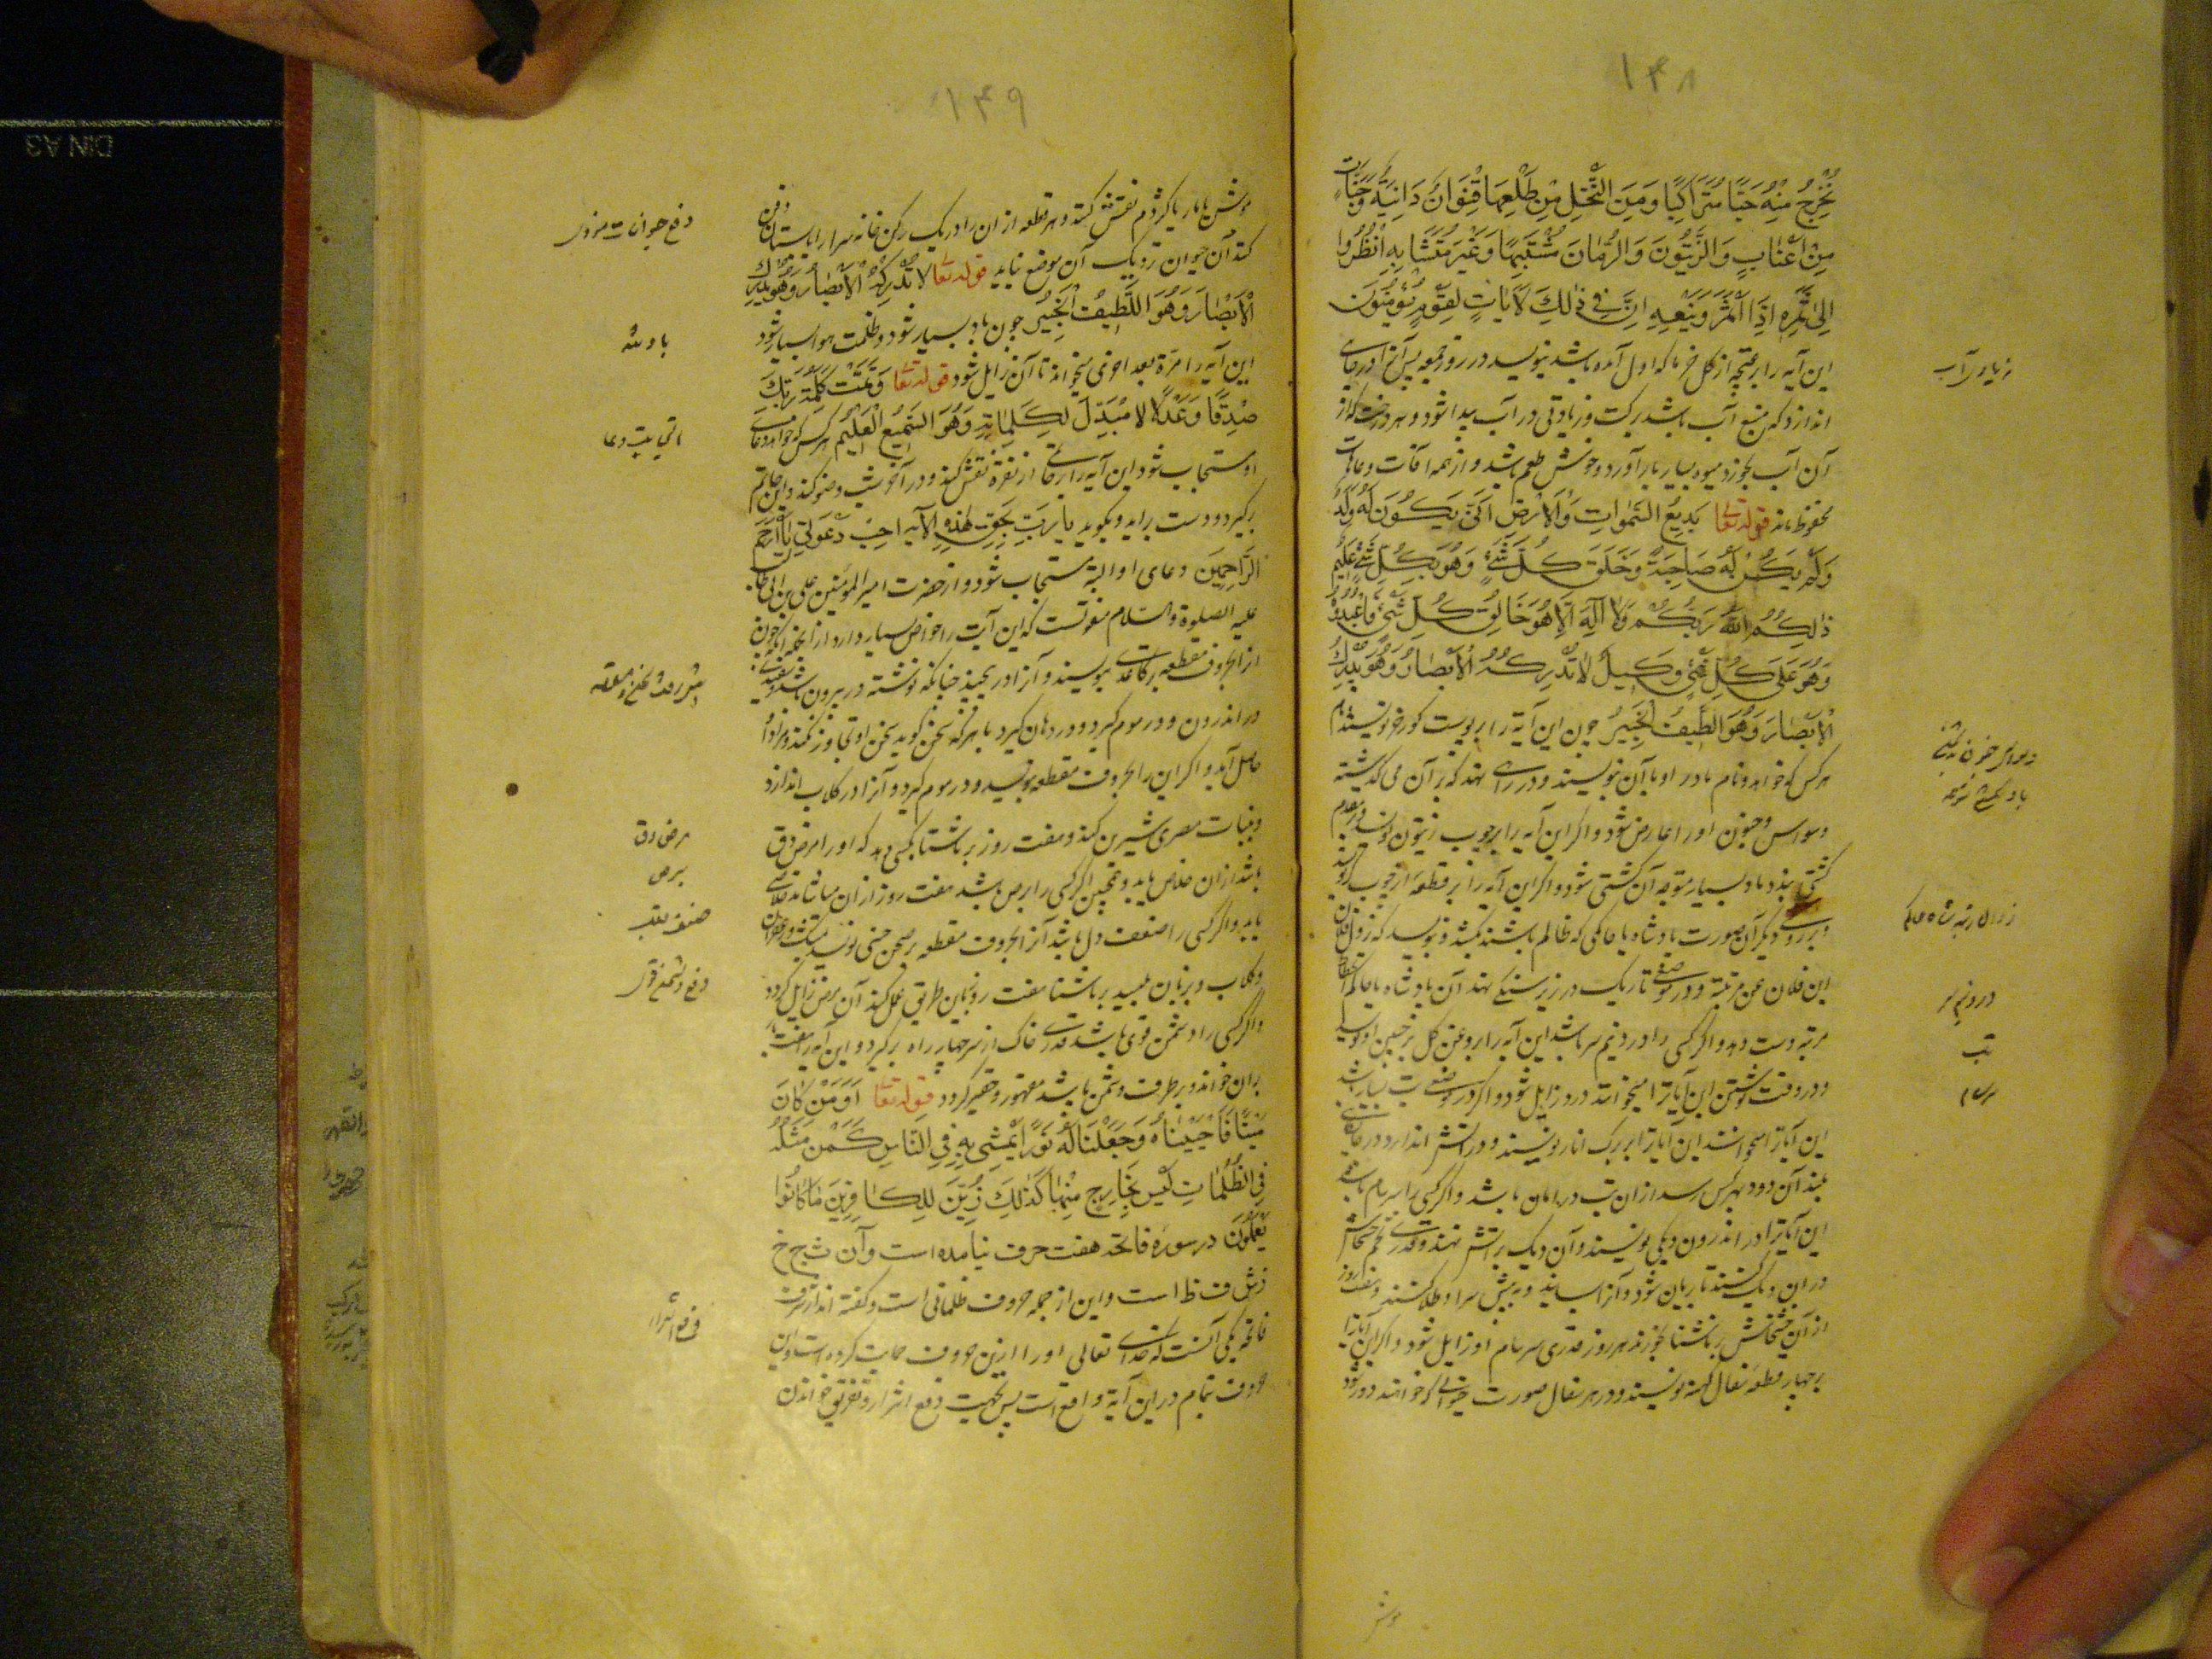 ۱۴۸
نُخْرِجُ مِنْهُ حَبًّا مُتَرَاكِبًا وَمِنَ النَّخْلِ مِنْ طَلْعِهَا قِنْوَانٌ دَانِيَةٌ وَجَنَّاتٍ
مِنْ اَعْنَابٍ وَالزَّيْتُونَ وَالرُّمَّانَ مُشْتَبِهًا وَغَيْرَ مُتَشَابِهٍ اُنْظُرُوا
اِلٰى ثَمَرِهِ اِذَا اَثْمَرَ وَيَنْعِهِ اِنَّ فِي ذٰلِكَ لَآيَاتٍ لِقَوْمٍ يُؤْمِنُونَ
این آیه را بر غنچه از گل خرما که اول آمده باشد بنویسد در روز جمعه پس آنرا در چاهی
اندازد که منبع آب باشد برکت و زیادتی در آب پیدا شود و هر درخت که از
آن آب بخورد میوه بسیار بار آورد و خوش طعم باشد و از همه آفات و عاهات
محفوظ ماند قوله تعا بَدِيعُ السَّمٰوَاتِ وَالْاَرْضِ اَنّٰى يَكُونُ لَهُ وَلَدٌ
وَلَمْ يَكُنْ لَهُ صَاحِبَةٌ وَخَلَقَ كُلَّ شَيْءٍ وَهُوَ بِكُلِّ شَيْءٍ عَلِيمٌ
ذٰلِكُمُ اللّٰهُ رَبُّكُمْ لَا اِلٰهَ اِلَّا هُوَ خَالِقُ كُلِّ شَيْءٍ فَاعْبُدُوهُ
وَهُوَ عَلٰى كُلِّ شَيْءٍ وَكِيلٌ لَا تُدْرِكُهُ الْاَبْصَارُ وَهُوَ يُدْرِكُ
الْاَبْصَارَ وَهُوَ اللَّطِيفُ الْخَبِيرُ چون این آیه را بر پوست گورخر نویسند نام
هر کس که خواهد و نام مادر او با آن بنویسند و در راهی نهند که بر آن می گذشته
وسواس و جنون او را عارض شود و اگر این آیه را بر چوب زیتون نویسند و در مقدم
کشتی بندد باد بسیار متوجه آن کشتی شود و اگر این آیه را بر قطعه از چوب
و بر روی دیگر آن صورت پادشاه یا حاکمی که ظالم باشند بکشد و بنویسد که زول فلان
این فلان عن مرتبة و در موضعی تاریک در زیر سنگی نهد آن پادشاه یا حاکم را
مرتبه دست دهد و اگر کسی را درد نیم سر باشد این آیه را بروغن گل بر جبین او نویسد
و در وقت نوشتن این آیاترا میخوانند درد زایل شود و اگر در موضعی تب بسیار باشد
این آیاترا میخوانند این آیاترا بر برک انار نویسند و در آتش اندازد در جائی
بلند آن دود بهر کس رسد از ان تب در امان باشد و اگر کسی را سرسام باشد
این آیاترا در اندرون دیکی نویسند و آن دیک بر آتش نهند و قدری تخم خشخاش
در ان دیک کنند تا بریان شود و آنرا بسایند و به پیش سر او طلا کنند و هفت روز
از آن خشخاش بر ناشتا بخورند هر روز قدری سرسام او زایل شود و اگر این آیاترا
بر چهار قطعه سفال کهنه نویسند و در هر سفال صورت حیوانی که خواهند دور شود
موش
زیادتی آب
وسواس جنون
باد کشتی
زوال رتبه شاه حاکم
درد نیم سر
تب
سرسام
۱۴۹
موش یا مار یا کژدم نقش کنند و هر قطعه از ان را در یک رکن خانه سرا یا بستان دفن
کند آن حیوان نزدیک آن موضع نیاید قوله تعا لَا تُدْرِكُهُ الْاَبْصَارُ وَهُوَ يُدْرِكُ
الْاَبْصَارَ وَهُوَ اللَّطِيفُ الْخَبِيرُ چون باد بسیار شود و ظلمت هوا بسیار شود
این آیه را مرة بعد اخری بخواند تا آن زایل شود قوله تعا وَتَمَّتْ كَلِمَةُ رَبِّكَ
صِدْقًا وَعَدْلًا لَا مُبَدِّلَ لِكَلِمَاتِهِ وَهُوَ السَّمِيعُ الْعَلِيمُ هر کس که خواهد دعای
او مستجاب شود این آیه را بر خاتمی از نقره نقش کند و در آخر شب وضو کند و این خاتم
برگیرد و دست بر آرد و بگوید يا رَبِّ بِحَقِّ هٰذِهِ الْآيَةِ اَجِبْ دَعْوَتِي يَا اَرْحَمَ
الرَّاحِمِينَ دعای او البته مستجاب شود و از حضرت امیر المؤمنین علی بن ابی طالب
علیه الصلوة والسلام منقولست که این آیت را خواص بسیار دارد از انجمله آنکه چون
از احرف مقطعه بر کاغذی بنویسند و آنرا در پیچند چنانکه نوشته در بیرون باشد و سفیدی
در اندرون و در موم گیرد و در دهان گیرد با هر که سخن گوید سخن او تجاوز نکند و مراد او
حاصل آید و اگر این را بحروف مقطعه بنویسد و در موم گیرد و آنرا در کلاب اندازد
و بنبات مصری شیرین کند و هفت روز بر ناشتا بکسی دهد که او را مرض دق
باشد از ان خلاص یابد و همچنین اگر کسی را برص باشد هفت روز از ان بیاشامد خلاصی
یابد و اگر کسی را ضعف دل باشد آنرا بحروف مقطعه بر صحن چینی نویسد بمشک و زعفران
و گلاب و بزبان بلیسد بر ناشتا هفت روز باین طریق عمل کند آن مرض زایل گردد
و اگر کسی را دشمن قوی باشد قدری خاک از سر چهار راه برگیرد و این آیه را هفت بار
بران خواند و بر طرف دشمن باشد مقهور و حقیر گردد قوله تعا اَوَمَنْ كَانَ
مَيْتًا فَاَحْيَيْنَاهُ وَجَعَلْنَا لَهُ نُورًا يَمْشِي بِهِ فِي النَّاسِ كَمَنْ مَثَلُهُ
فِي الظُّلُمَاتِ لَيْسَ بِخَارِجٍ مِنْهَا كَذٰلِكَ زُيِّنَ لِلْكَافِرِينَ مَا كَانُوا
يَعْمَلُونَ در سورة فاتحه هفت حرف نیامده است و آن ث ج خ
ز ش ف ظ است و این از جمله حروف ظلمانی است و گفته اند از شرف
فاتحه یکی آنست که خدای تعالی او را ازین حروف حمایت کرده است و این
حروف تمام در این آیة واقع است پس بجهت دفع اشرار و تفریق خواندن
دفع حیوانات موذی
باد تند
اجابت دعا
مرض دق
برص
ضعف قلب
دفع دشمن قوی
دفع اشرار
DIN A3